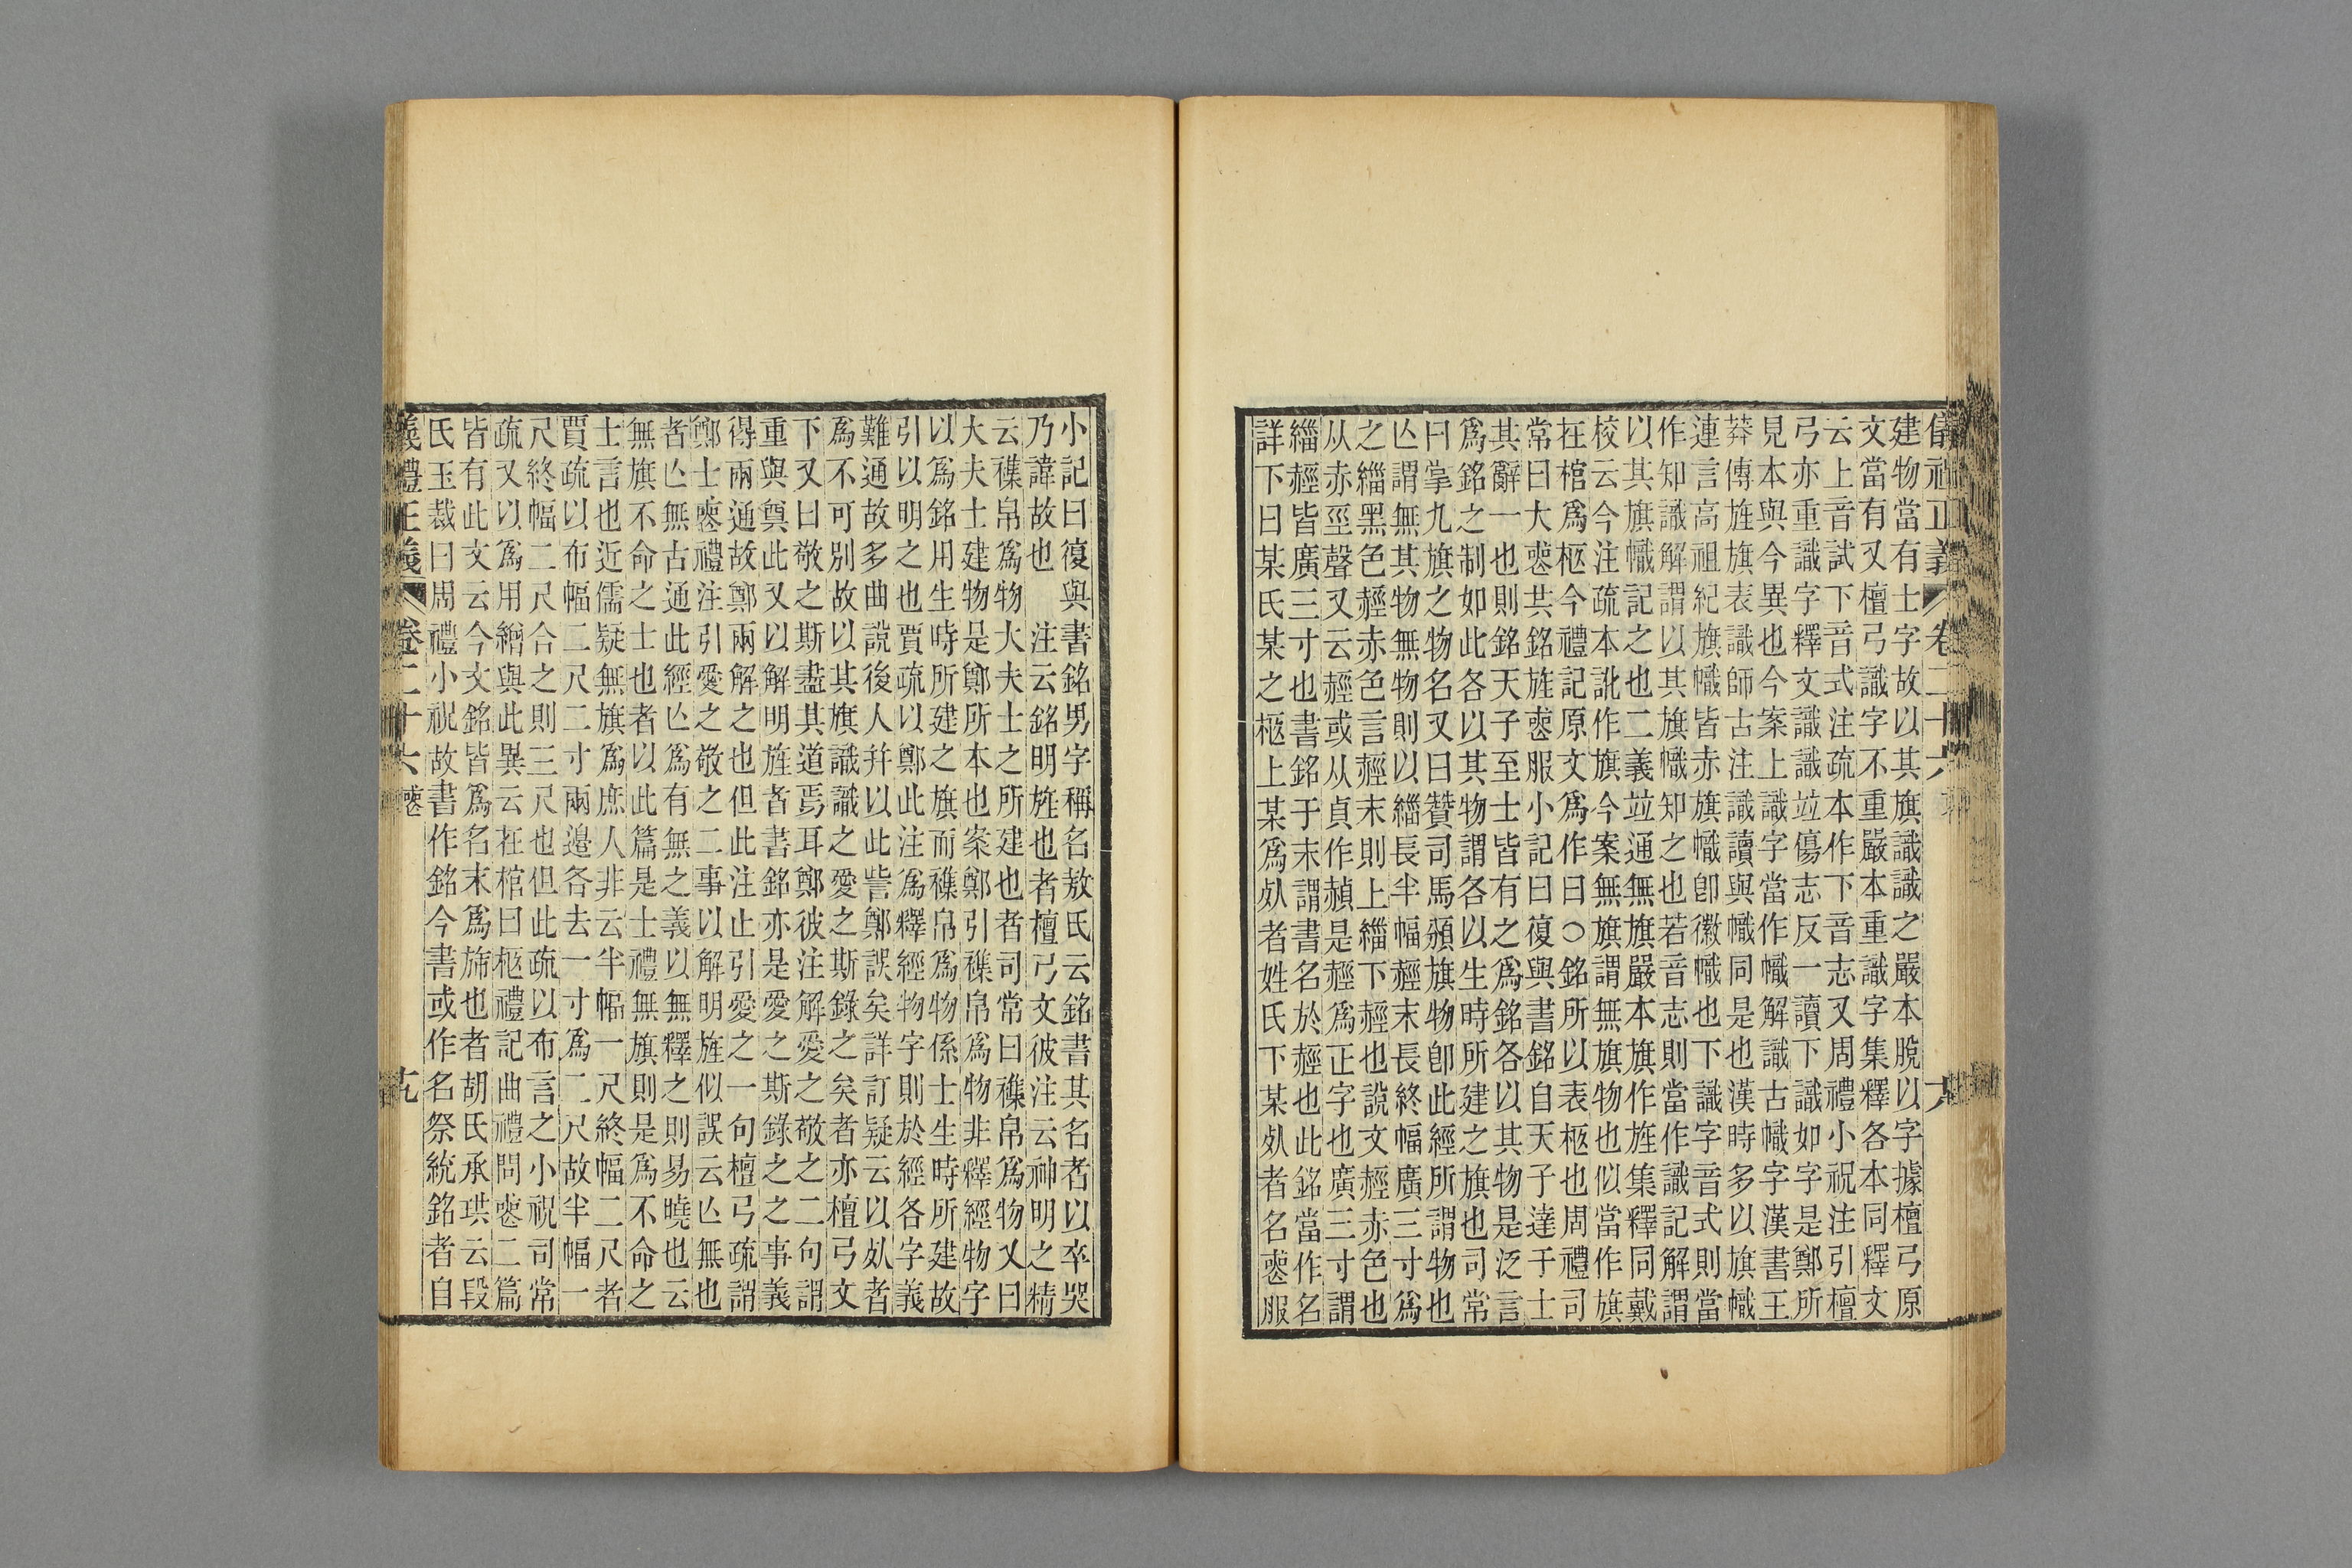 儀禮正義 卷二十六 大
建物當有士字故以其旗識識之嚴本脫以字據檀弓原
文當有又檀弓識字不重嚴本重識字集釋各本同釋文
云上音試下音式注疏本作下音志又周禮小祝注引檀
弓亦重識字釋文識識竝傷志反一讀下識如字是鄭所
見本與今異也今案上識字當作幟解識古幟字漢書王
莽傳旌旗表識師古注識讀與幟同是也漢時多以旗幟
連言高祖紀旗幟皆赤旗幟卽徽幟也下識字音式則當
作知識解謂以其旗幟知之也若音志則當作識記解謂
以其旗幟記之也二義竝通無旗嚴本旗作旌集釋同戴
校云今注疏本訛作旗今案無旗謂無旗物也似當作旗
在棺爲柩今禮記原文爲作曰○銘所以表柩也周禮司
常曰大喪共銘旌喪服小記曰復與書銘自天子達于士
其辭一也則銘天子至士皆有之爲銘各以其物是泛言
爲銘之制如此各以其物謂各以生時所建之旗也司常
曰掌九旗之物名又曰贊司馬頒旗物卽此經所謂物也
亾謂無其物無物則以緇長半幅䞓末長終幅廣三寸爲
之緇黑色䞓赤色言䞓末則上緇下䞓也說文䞓赤色也
从赤巠聲又云䞓或从貞作赬是䞓爲正字也廣三寸謂
緇䞓皆廣三寸也書銘于末謂書名於䞓也此銘當作名
詳下曰某氏某之柩上某爲死者姓氏下某死者名喪服
小記曰復與書銘男字稱名敖氏云銘書其名者以卒哭
乃諱故也 注云銘明旌也者檀弓文彼注云神明之精
云襍帛爲物大夫士之所建也者司常曰襍帛爲物又曰
大夫士建物是鄭所本也案鄭引襍帛爲物非釋經物字
以爲銘用生時所建之旗而襍帛爲物係士生時所建故
引以明之也賈疏以鄭此注爲釋經物字則於經各字義
難通故多曲說後人幷以此訾鄭誤矣詳訂疑云以死者
爲不可別故以其旗識識之愛之斯錄之矣者亦檀弓文
下又曰敬之斯盡其道焉耳鄭彼注解愛之敬之二句謂
重與奠此又以解明旌者書銘亦是愛之斯錄之之事義
得兩通故鄭兩解之也但此注止引愛之一句檀弓疏謂
鄭士喪禮注引愛之敬之二事以解明旌似誤云亾無也
者亾無古通此經亾爲有無之義以無釋之則易曉也云
無旗不命之士也者以此篇是士禮無旗則是爲不命之
士言也近儒疑無旗爲庶人非云半幅一尺終幅二尺者
賈疏以布幅二尺二寸兩邊各去一寸爲二尺故半幅一
尺終幅二尺合之則三尺也但此疏以布言之小祝司常
疏又以爲用繒與此異云在棺曰柩禮記曲禮問喪二篇
皆有此文云今文銘皆爲名末爲旆也者胡氏承珙云段
氏玉裁曰周禮小祝故書作銘今書或作名祭統銘者自
義禮正義 卷二十六 喪 十九